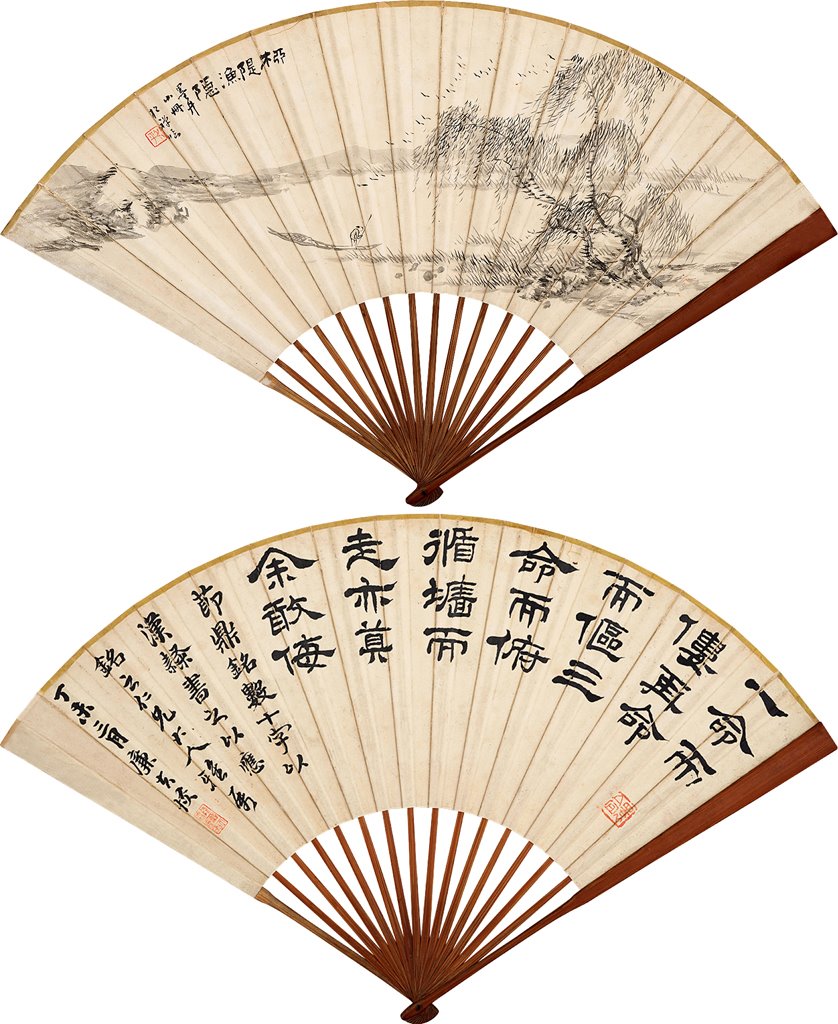 桺隄漁隱
墨井
小冊
一命而
僂再命
而傴三
命而俯
循墻而
走亦莫
余敢侮
節鼎銘數十字以
漢隸書之以應
銘之仁兄大人雅屬
丁未三月廉